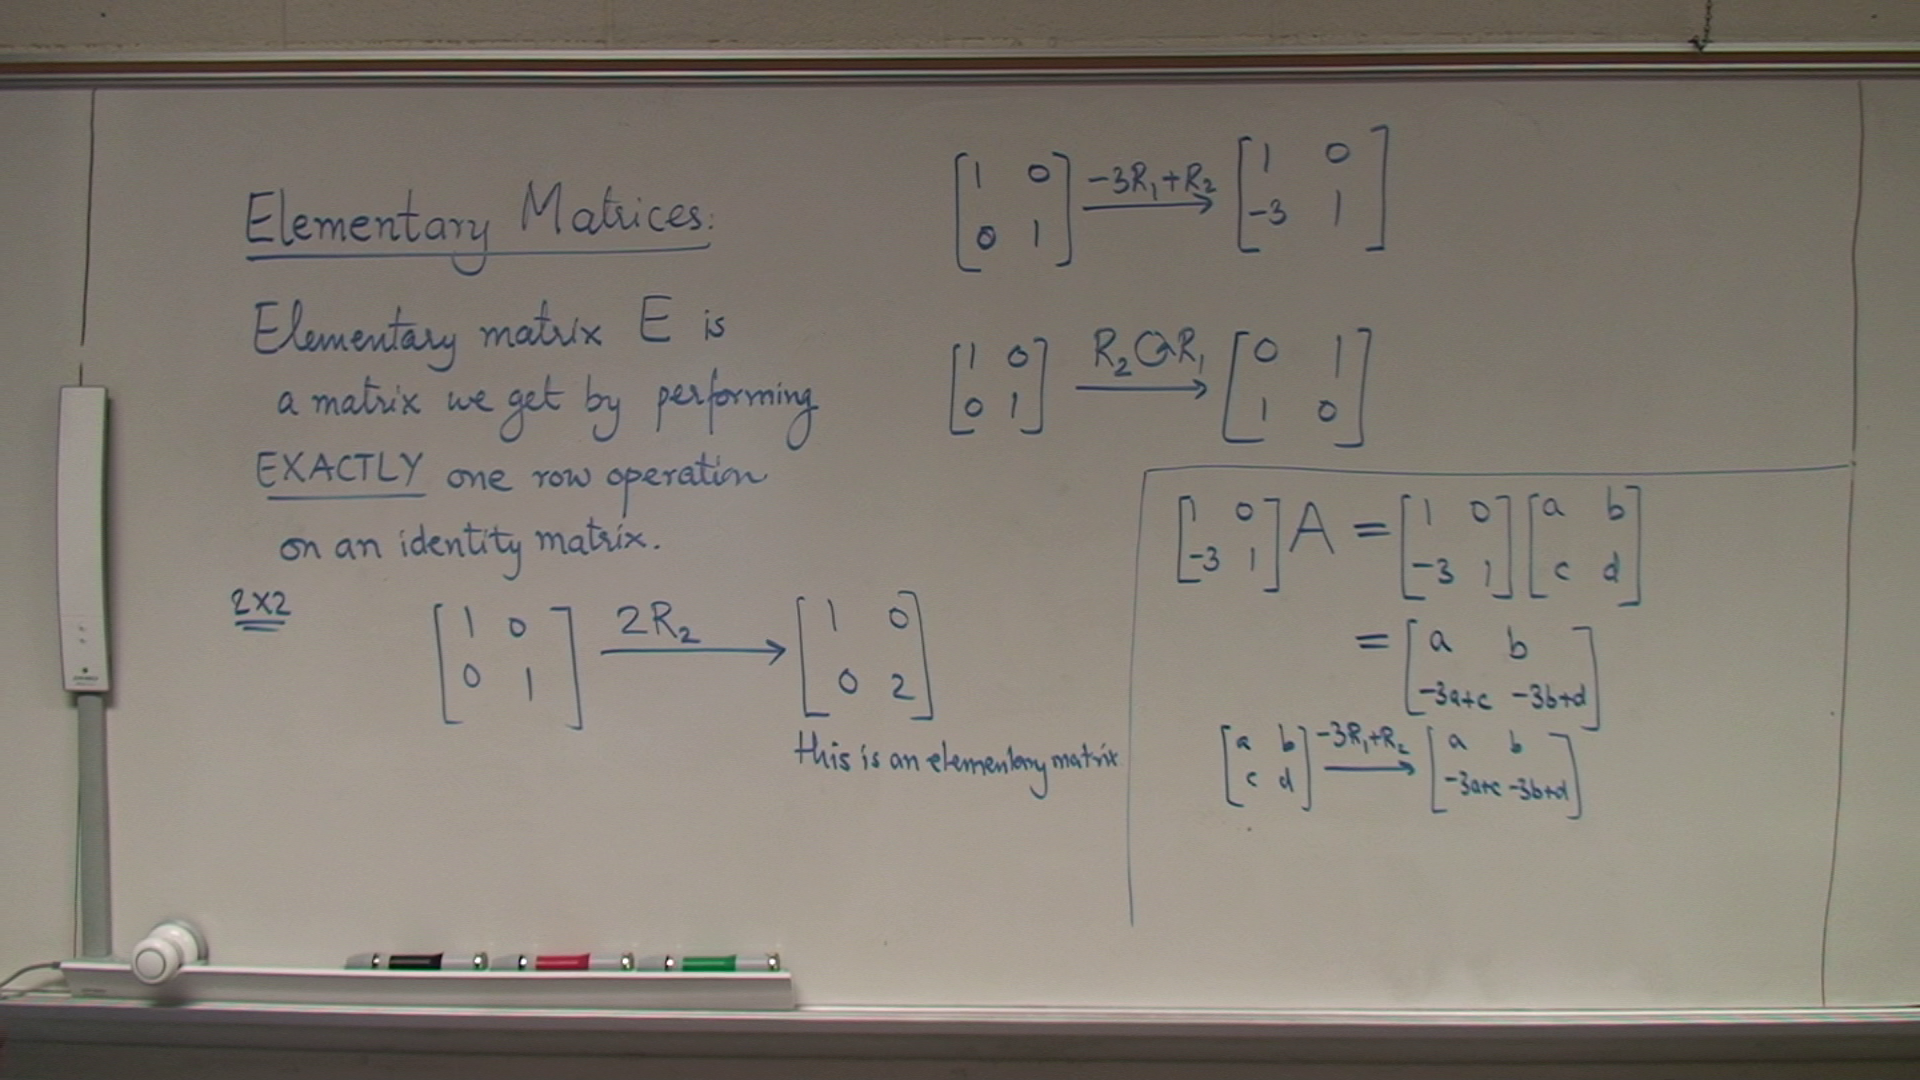 Elementary Matrices:
Elementary matrix E is
a matrix we get by performing
EXACTLY one row operation
on an identity matrix.
2x2
[1 0; 0 1] 2R₂ → [1 0; 0 2]
this is an elementary matrix
[1 0; 0 1] -3R₁+R₂ → [1 0; -3 1]
[1 0; 0 1] R₂↔R₁ → [0 1; 1 0]
[1 0; -3 1] A = [1 0; -3 1] [a b; c d]
= [a b; -3a+c -3b+d]
[a b; c d] -3R₁+R₂ → [a b; -3a+c -3b+d]